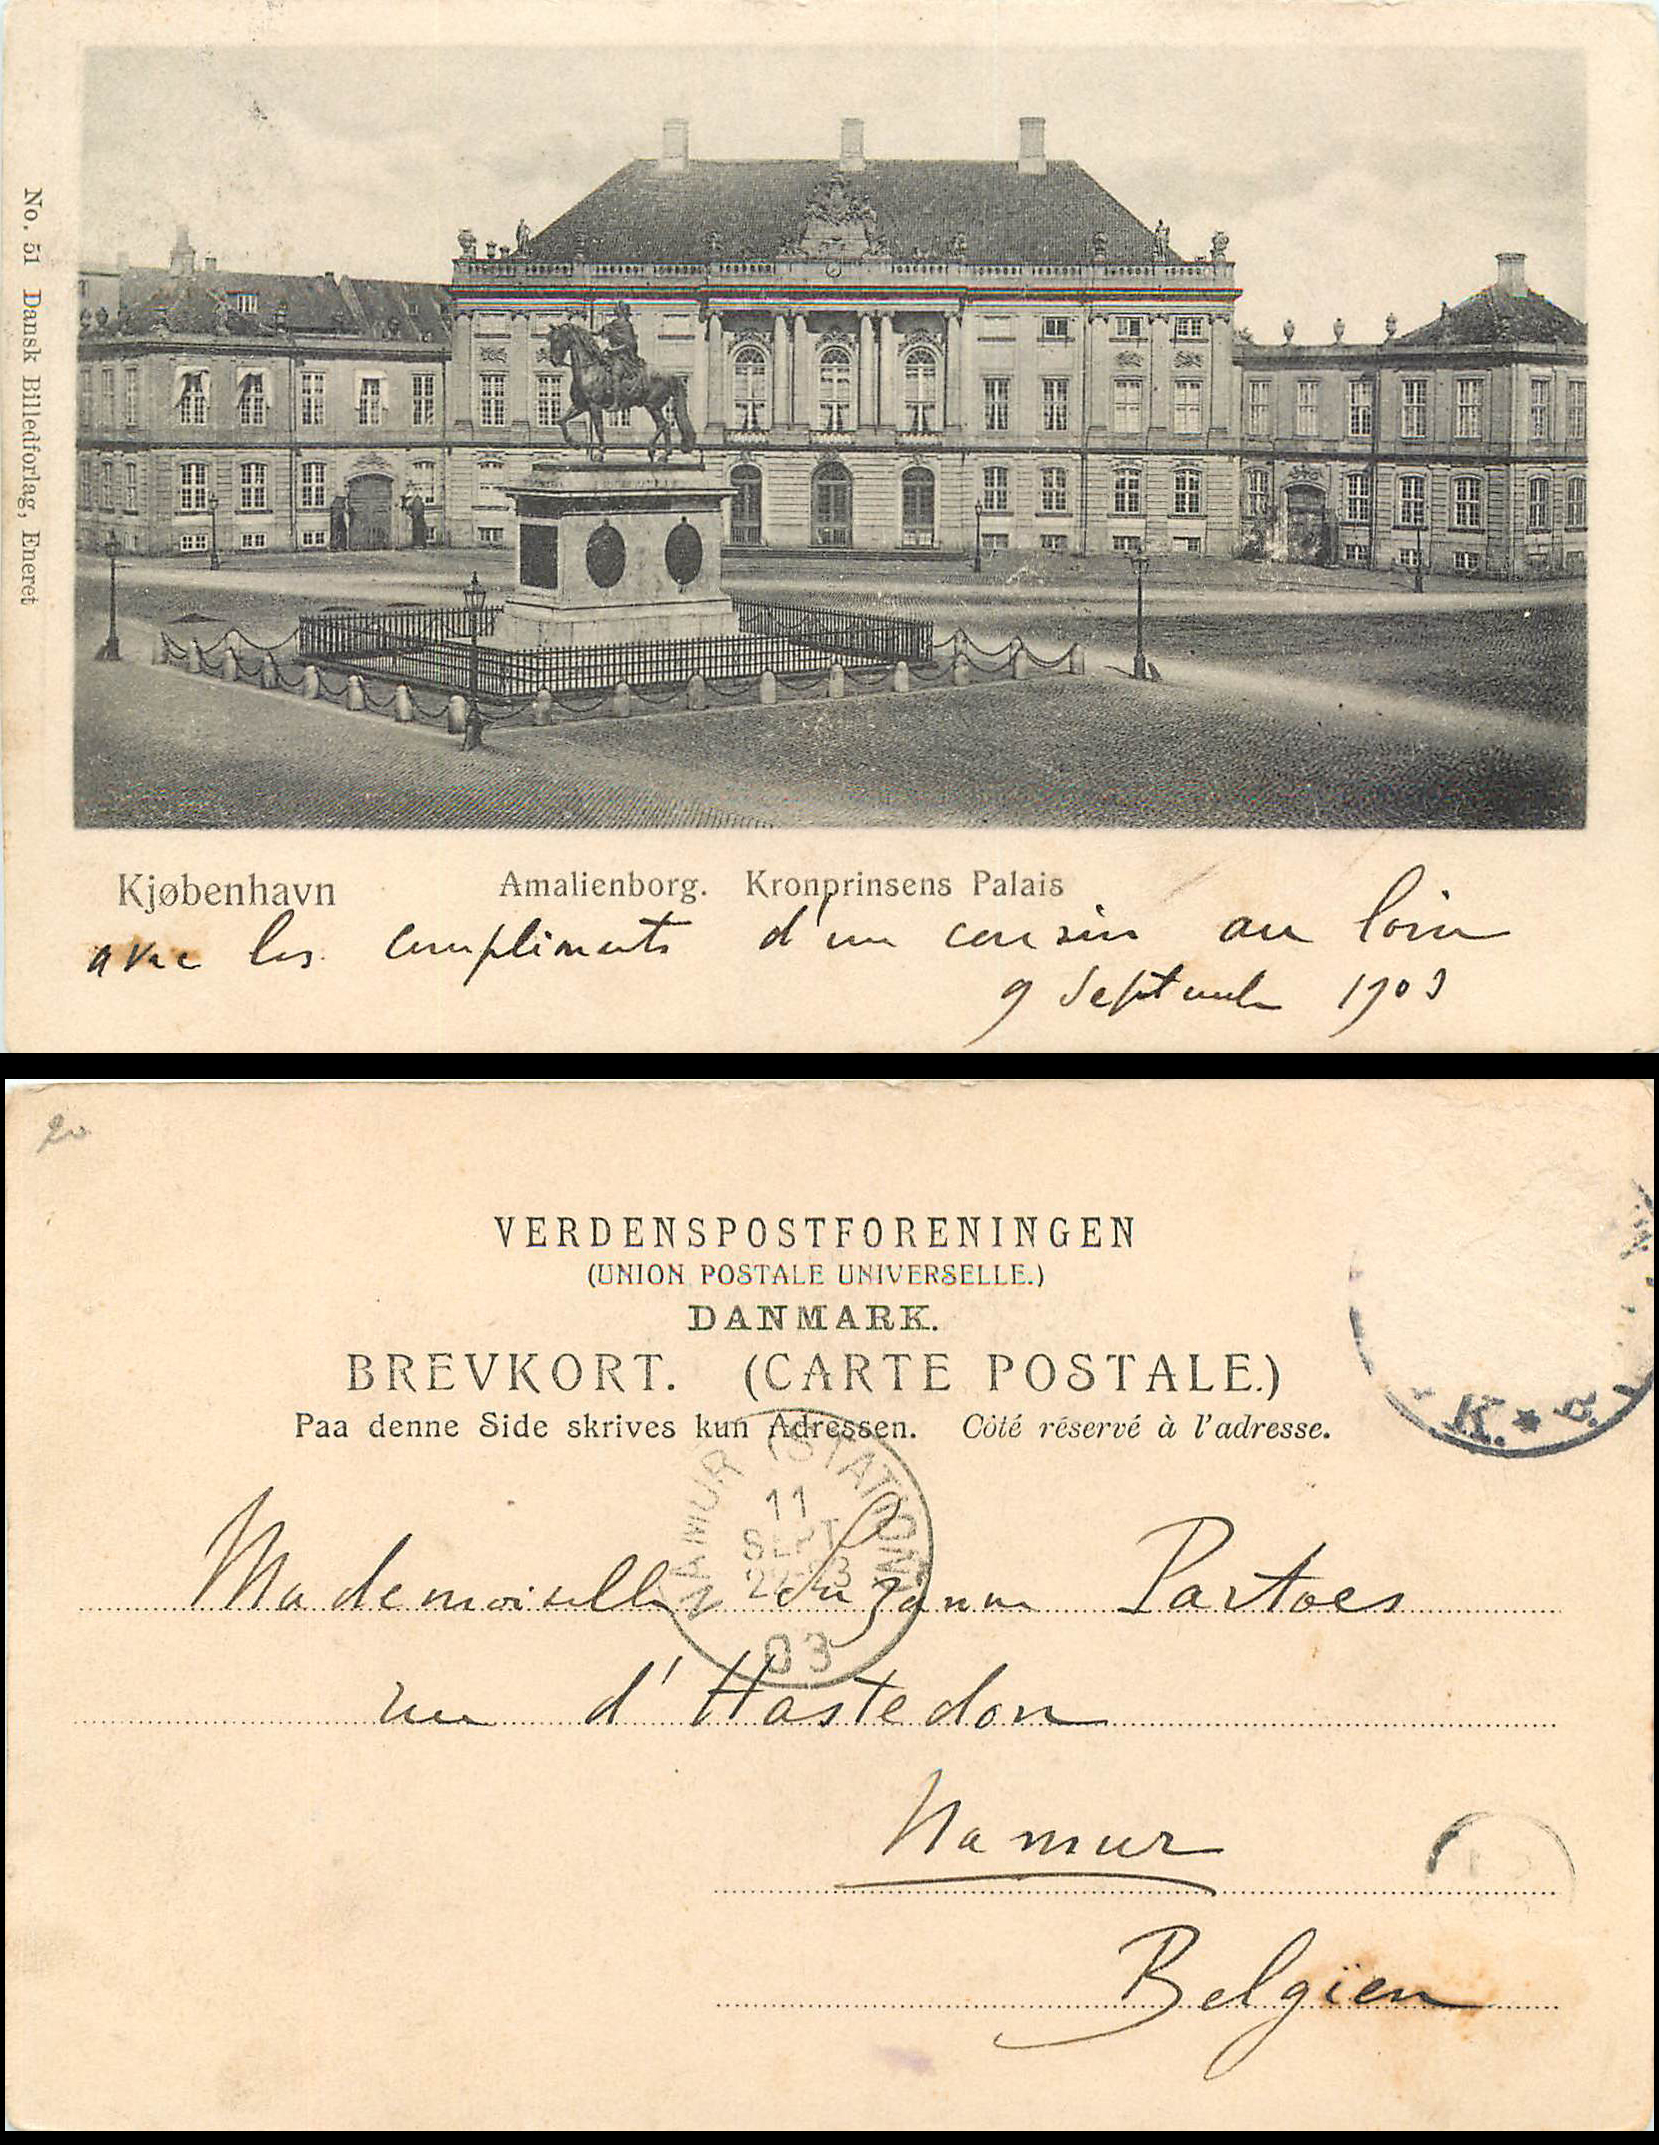 No. 51 Dansk Billedforlag, Eneret
Kjøbenhavn Amalienborg. Kronprinsens Palais
avec les compliments d'un cousin au loin
9 Septembre 1903
20
VERDENSPOSTFORENINGEN
(UNION POSTALE UNIVERSELLE.)
DANMARK.
BREVKORT. (CARTE POSTALE.)
Paa denne Side skrives kun Adressen. Côté réservé à l'adresse.
K. * B.
NAMUR (STATION)
11
SEPT
22-23
03
Mademoiselle Suzanne Partoes
rue d'Hastedon
Namur
Belgïen